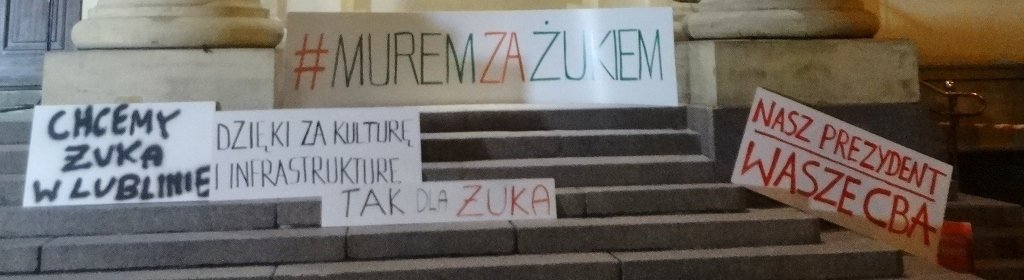 #MUREMZAŻUKIEM
CHCEMY
ŻUKA
W LUBLINIE
DZIĘKI ZA KULTURĘ
I INFRASTRUKTURĘ
TAK DLA ŻUKA
NASZ PREZYDENT
WASZE CBA